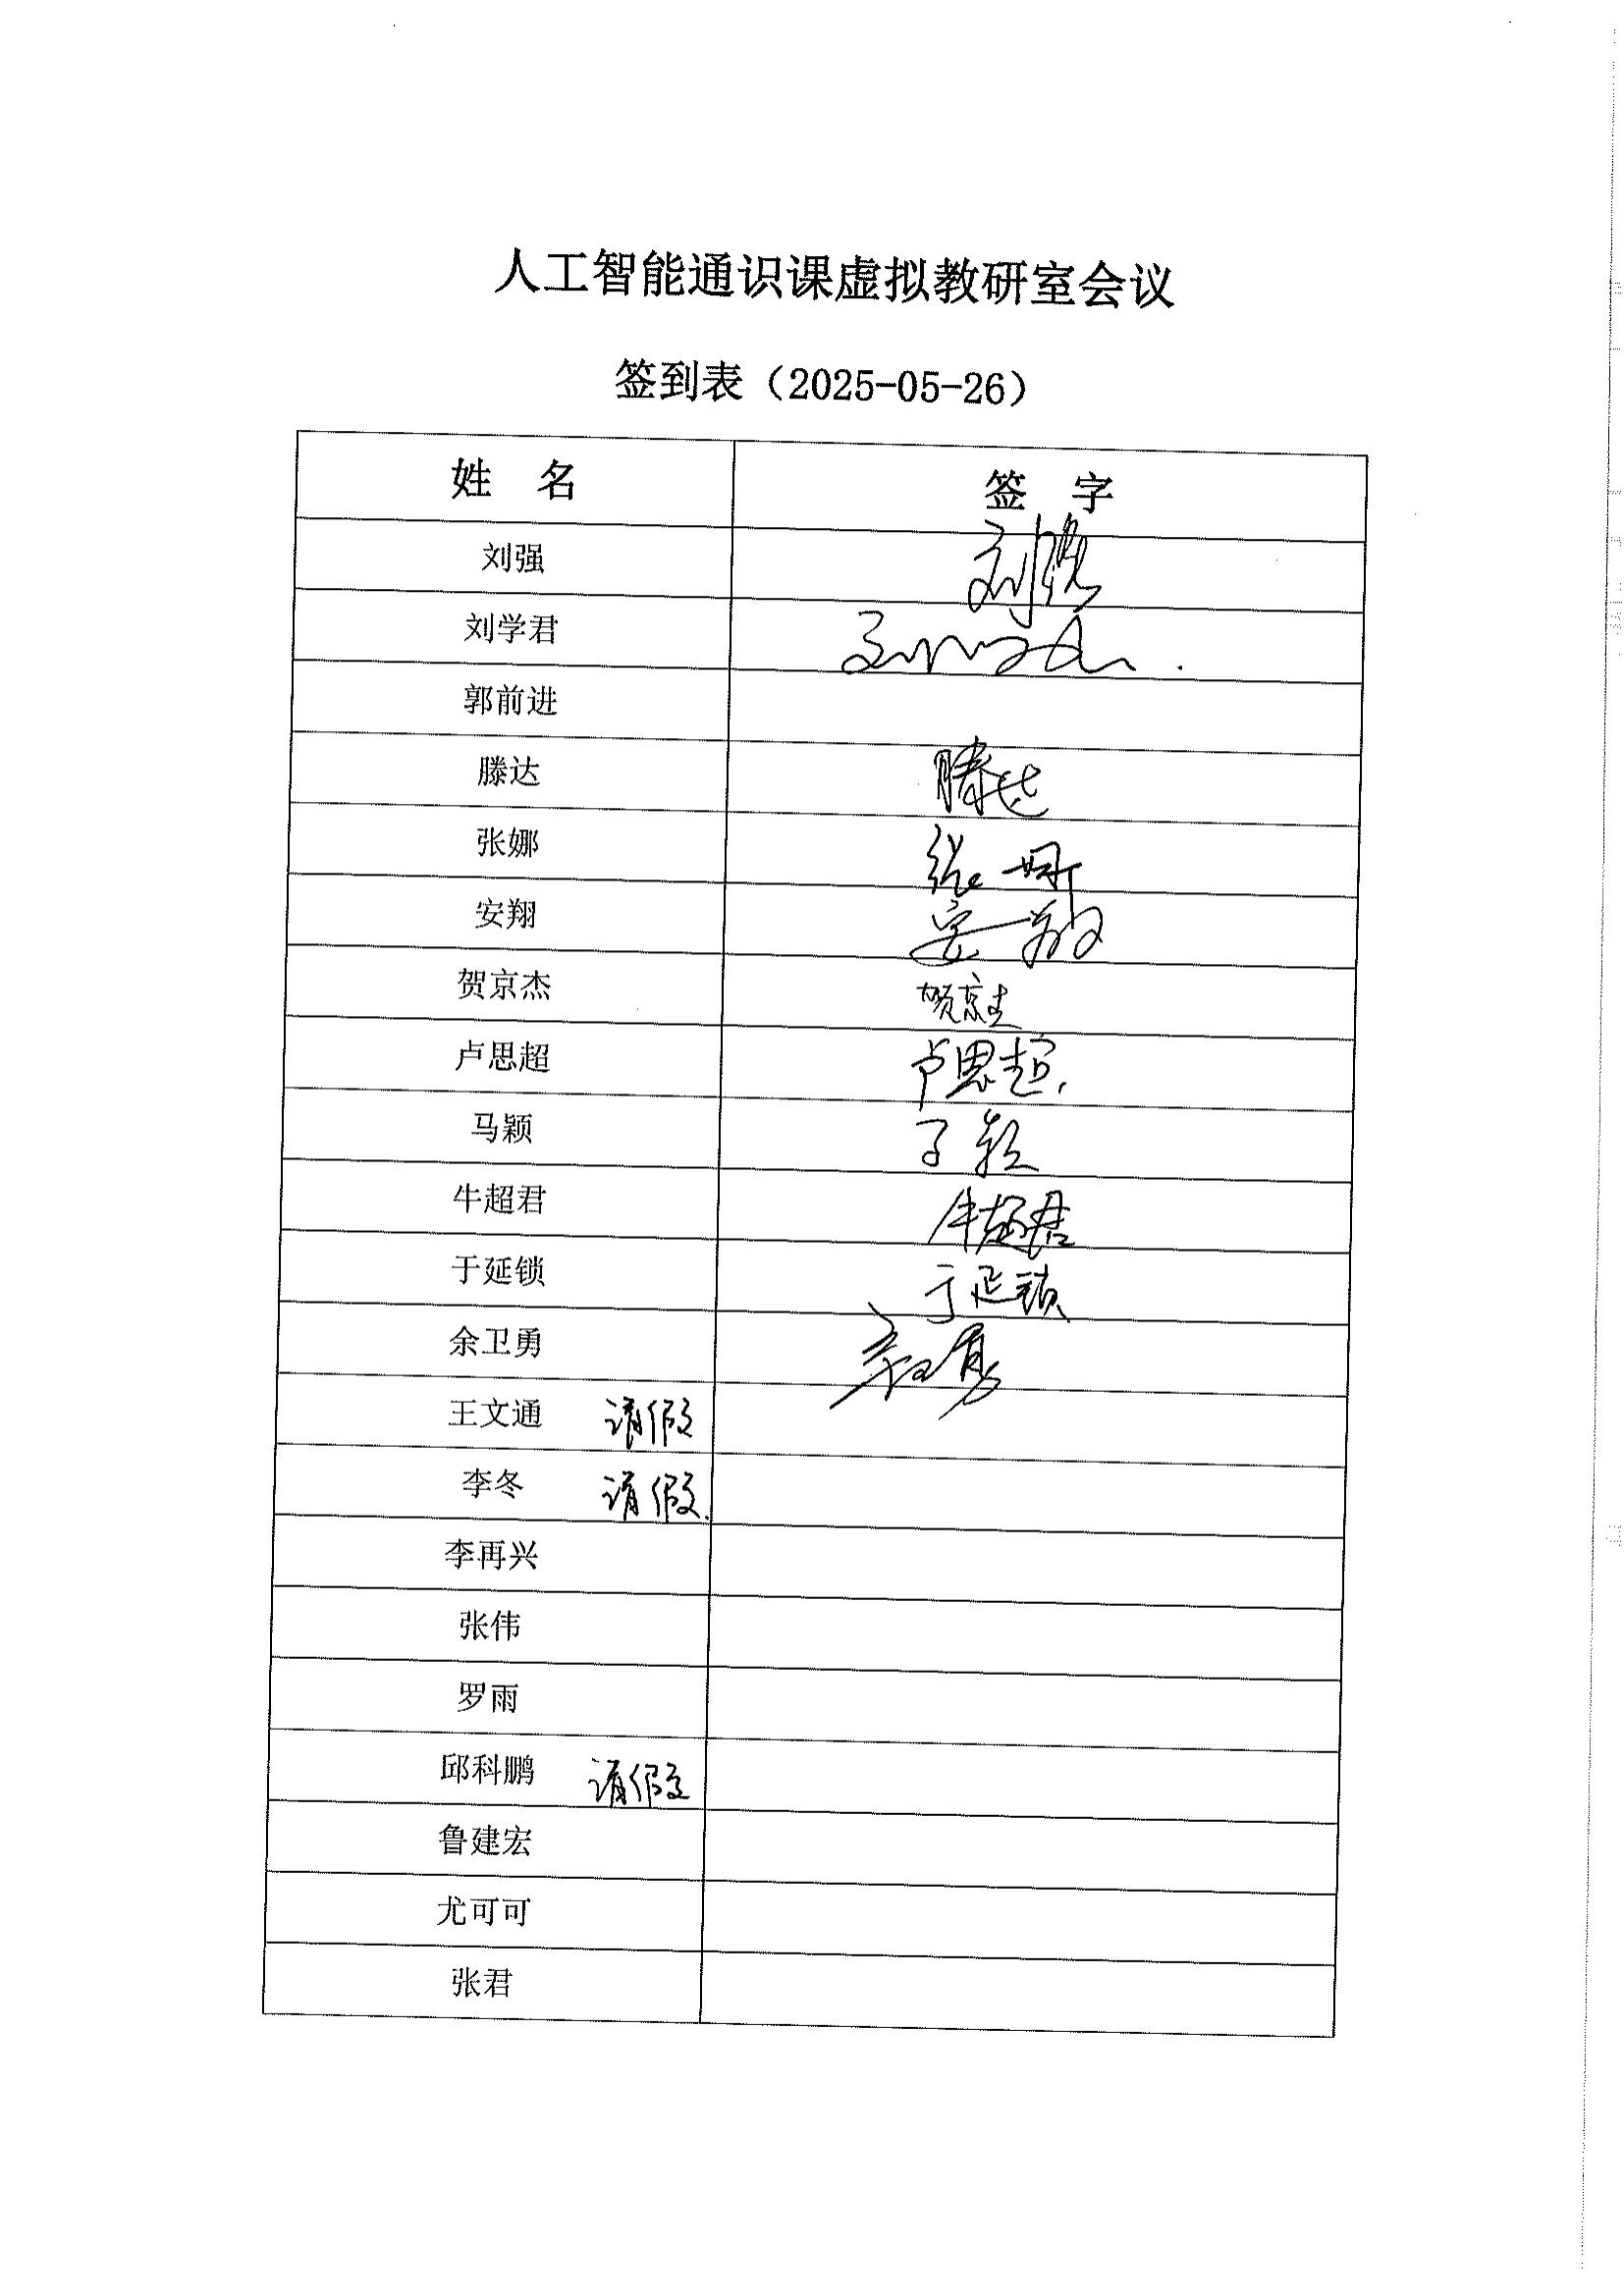 人工智能通识课虚拟教研室会议
签到表（2025-05-26）
姓 名 签 字
刘强 刘强
刘学君
郭前进
滕达 滕达
张娜 张娜
安翔 安翔
贺京杰 贺京杰
卢思超 卢思超
马颖 马颖
牛超君 牛超君
于延锁 于延锁
余卫勇 余卫勇
王文通 请假
李冬 请假
李再兴
张伟
罗雨
邱科鹏 请假
鲁建宏
尤可可
张君